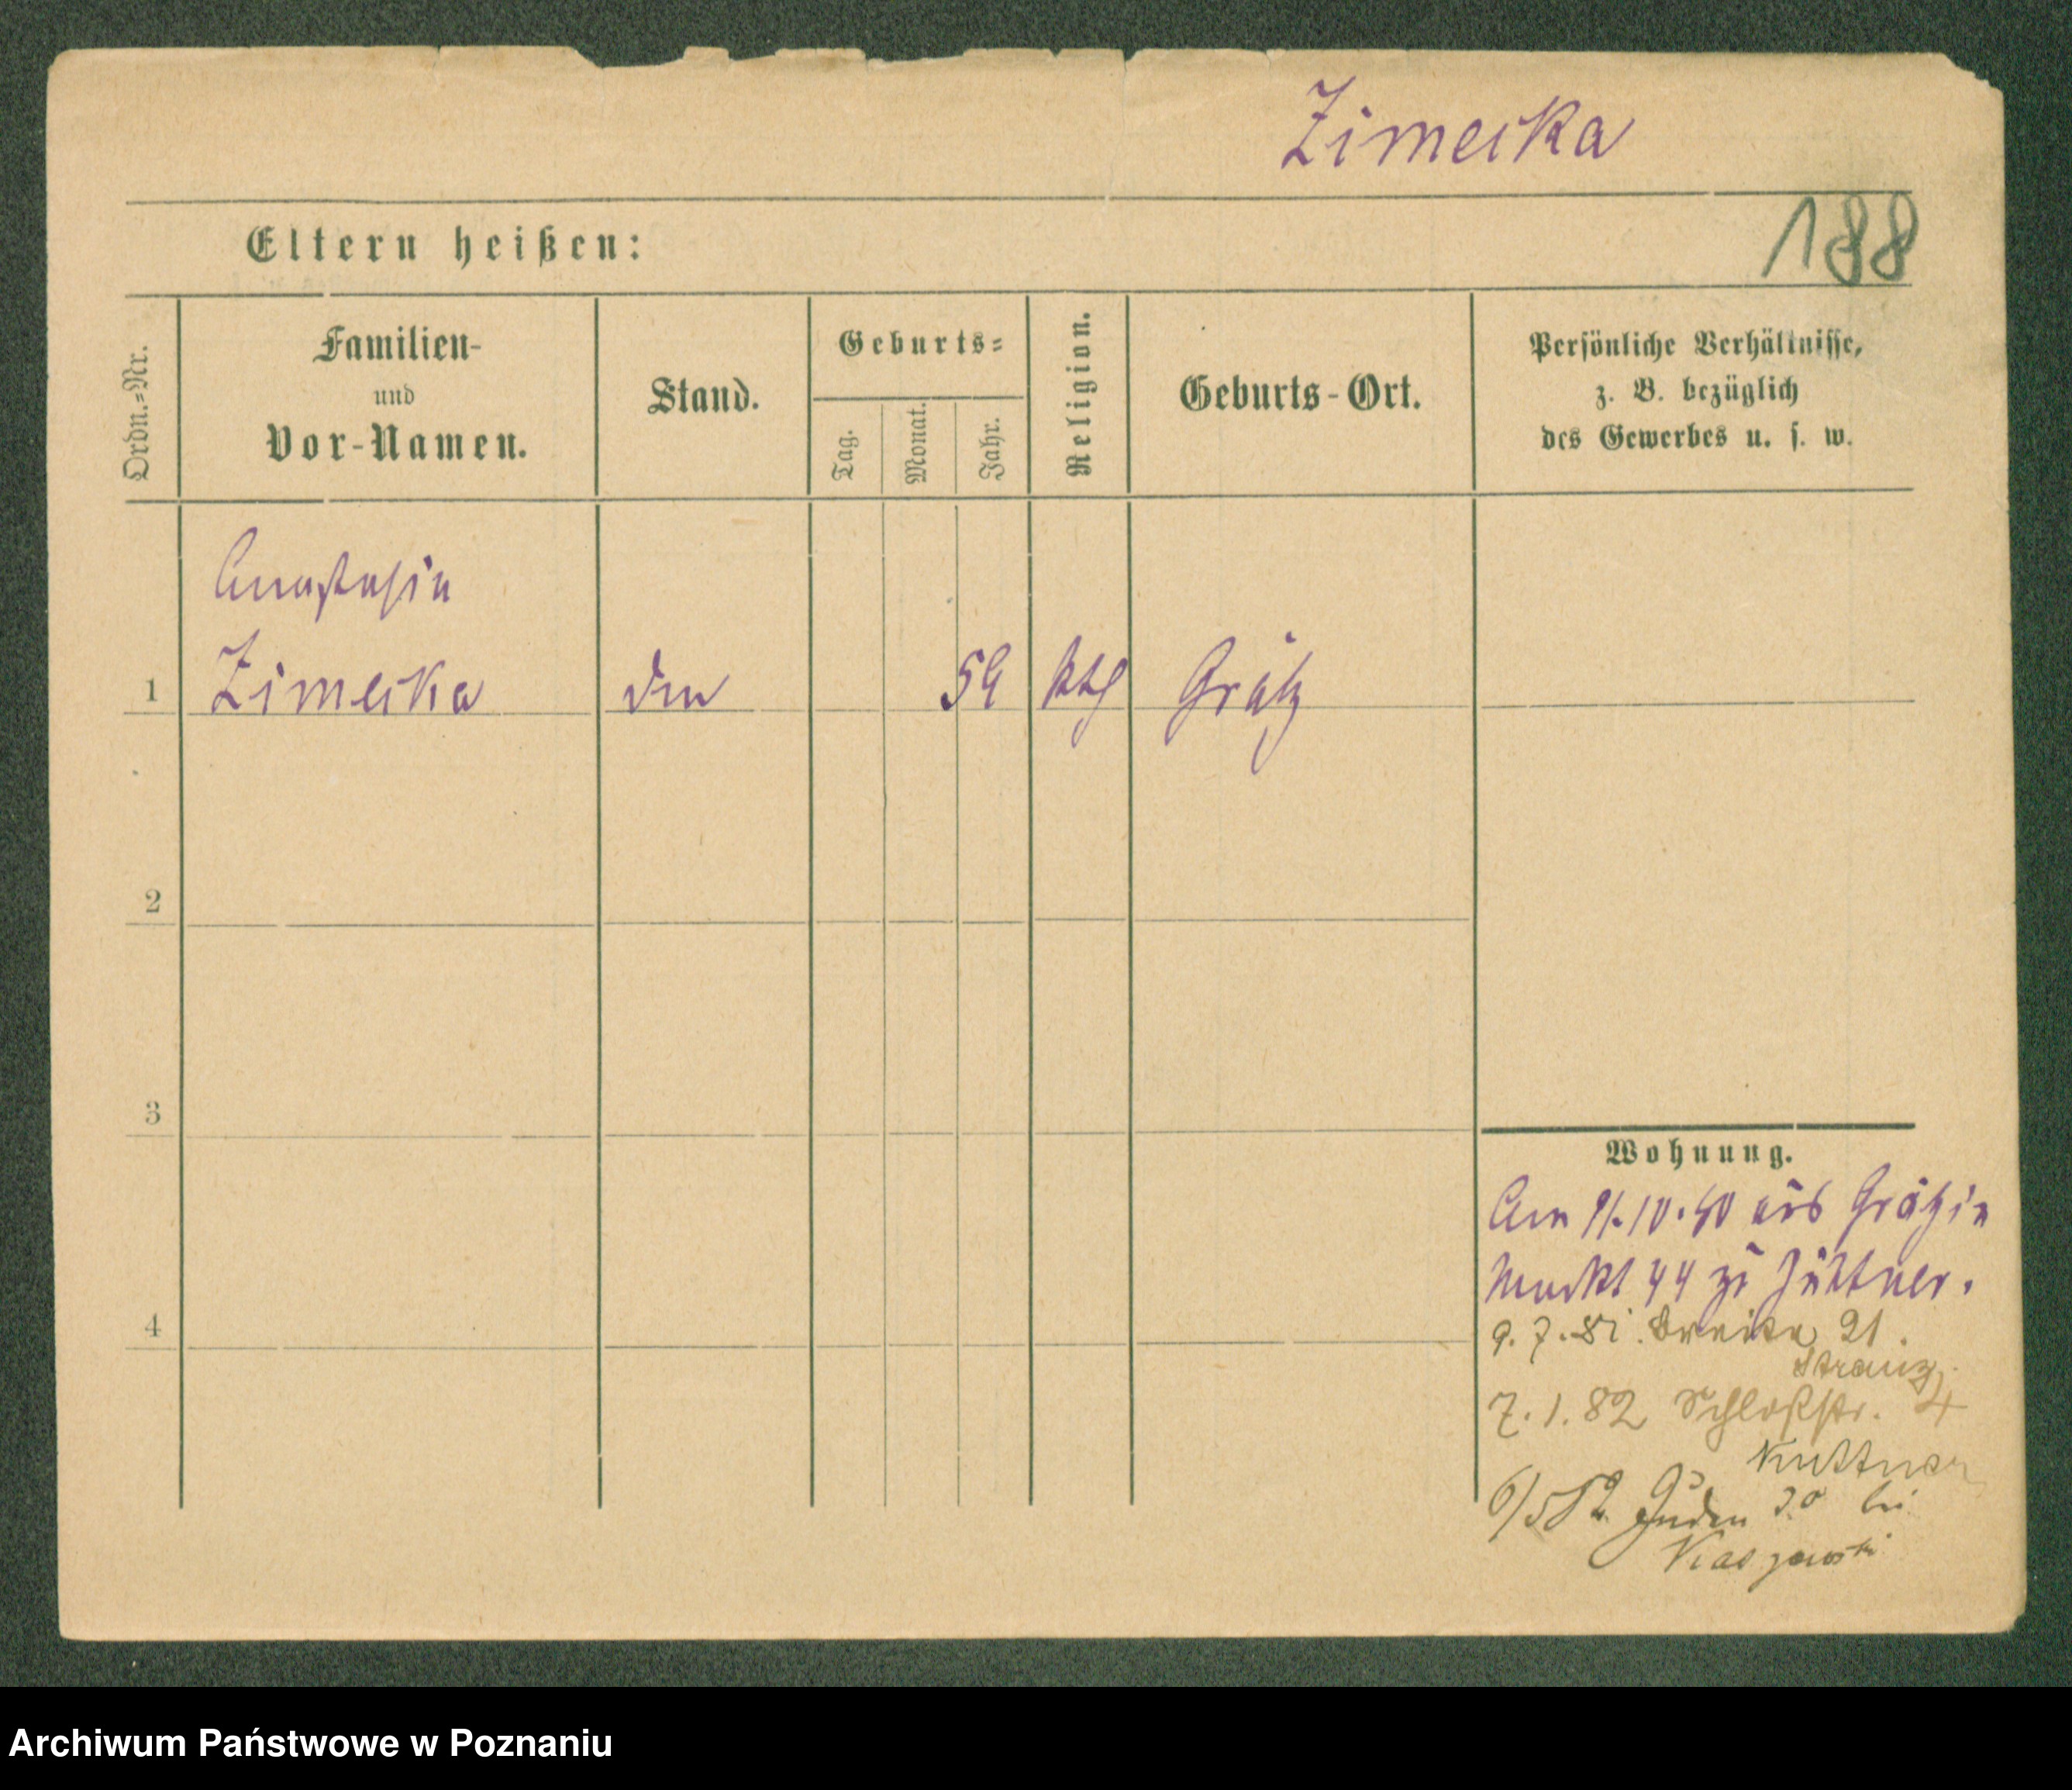 Zimecka
188
Eltern heißen:
Ordn.-Nr.
Familien-
und
Vor-Namen.
Stand.
Geburts-
Tag.
Monat.
Jahr.
Religion.
Geburts-Ort.
Persönliche Verhältnisse,
z. B. bezüglich
des Gewerbes u. s. w.
Anastasia
1 Zimecka 59 kth Grätz
2
3
4
Wohnung.
Am 10. aus Grätz in
Markt 44 zu
9. 7. 81. Breite 21.
7. 1. 82 Schloßstr. 4
Kuttner
6/5 82 Juden 30 bei
Archiwum Państwowe w Poznaniu